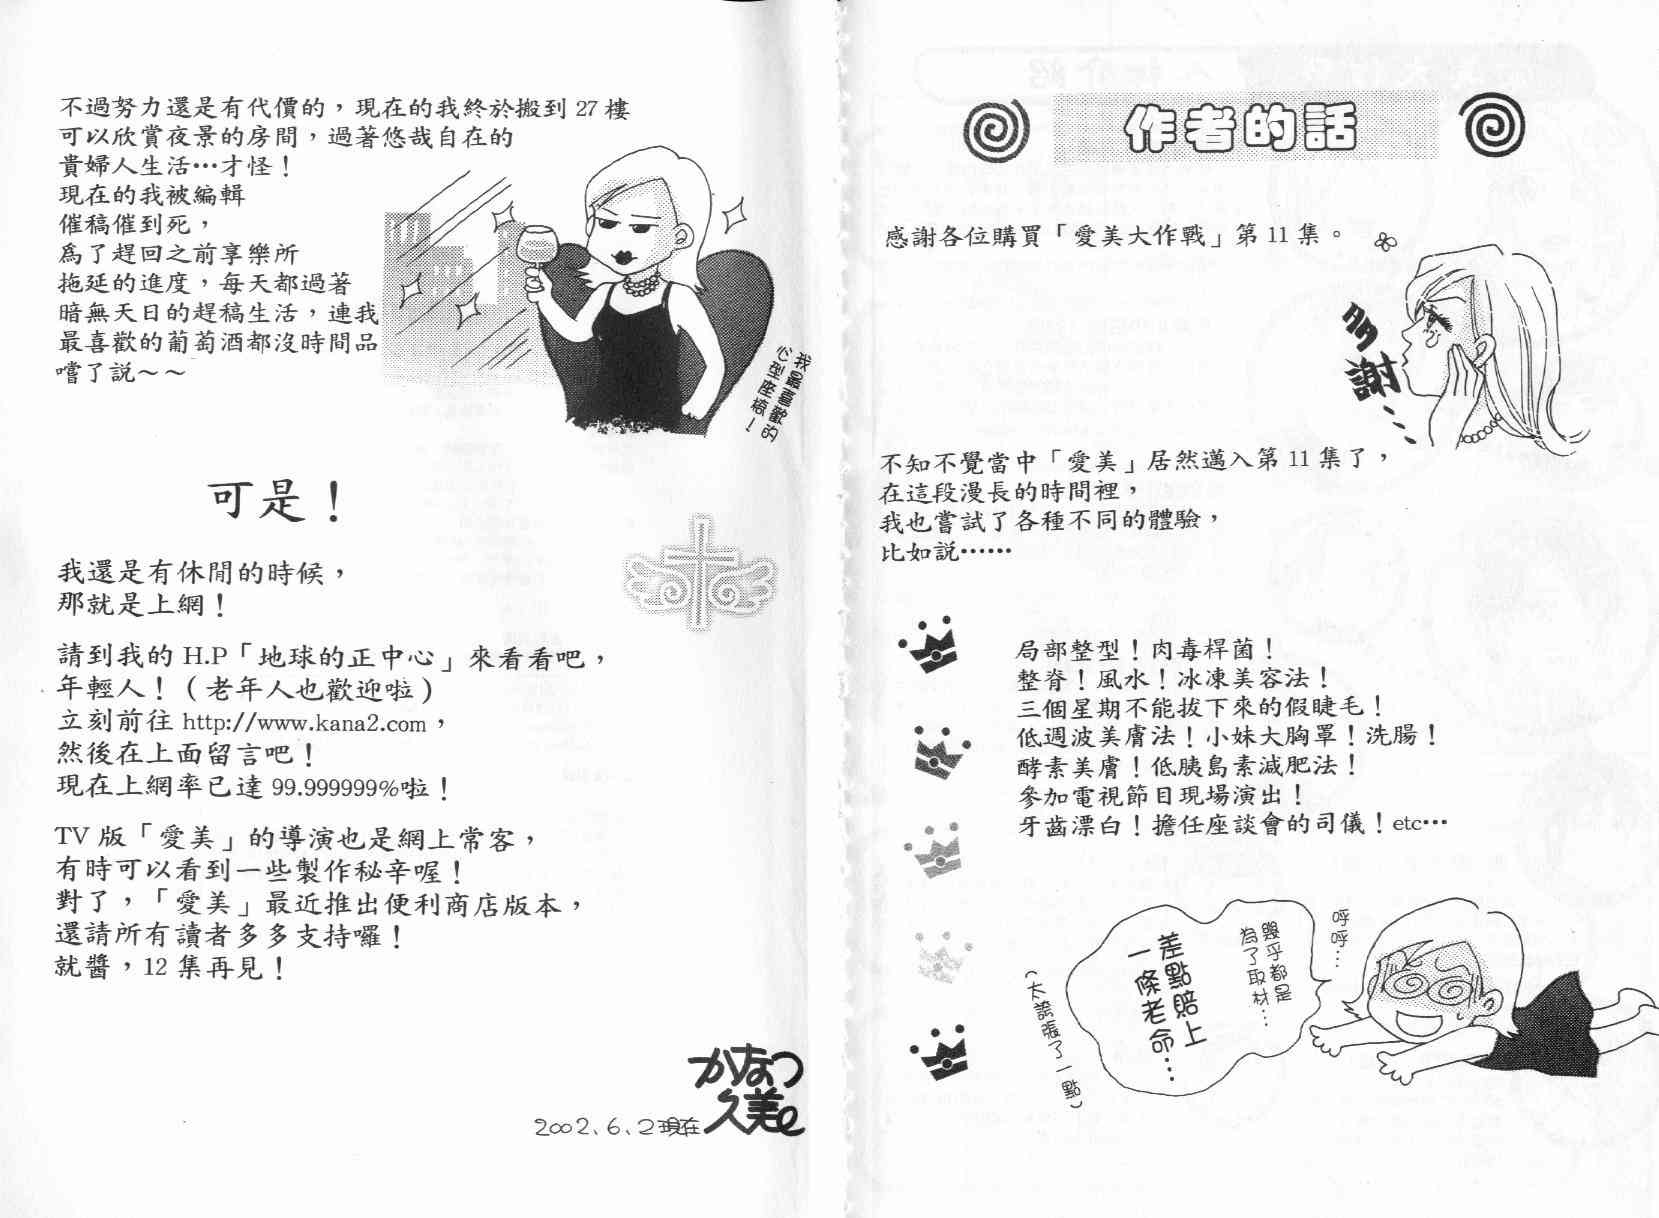 作者的話
感謝各位購買「愛美大作戰」第 11 集。
多謝…
不知不覺當中「愛美」居然邁入第 11 集了，
在這段漫長的時間裡，
我也嘗試了各種不同的體驗，
比如說……
局部整型！肉毒桿菌！
整脊！風水！冰凍美容法！
三個星期不能拔下來的假睫毛！
低週波美膚法！小妹大胸罩！洗腸！
酵素美膚！低胰島素減肥法！
參加電視節目現場演出！
牙齒漂白！擔任座談會的司儀！etc…
呼呼…
幾乎都是
為了取材…
差點賠上
一條老命…
（太誇張了一點）
不過努力還是有代價的，現在的我終於搬到 27 樓
可以欣賞夜景的房間，過著悠哉自在的
貴婦人生活…才怪！
現在的我被編輯
催稿催到死，
為了趕回之前享樂所
拖延的進度，每天都過著
暗無天日的趕稿生活，連我
最喜歡的葡萄酒都沒時間品
嚐了說～～
我最喜歡的
心型座椅！
可是！
我還是有休閒的時候，
那就是上網！
請到我的 H.P「地球的正中心」來看看吧，
年輕人！（老年人也歡迎啦）
立刻前往 http://www.kana2.com，
然後在上面留言吧！
現在上網率已達 99.999999%啦！
TV 版「愛美」的導演也是網上常客，
有時可以看到一些製作秘辛喔！
對了，「愛美」最近推出便利商店版本，
還請所有讀者多多支持囉！
就醬，12 集再見！
かなつ
久美
2002、6、2現在